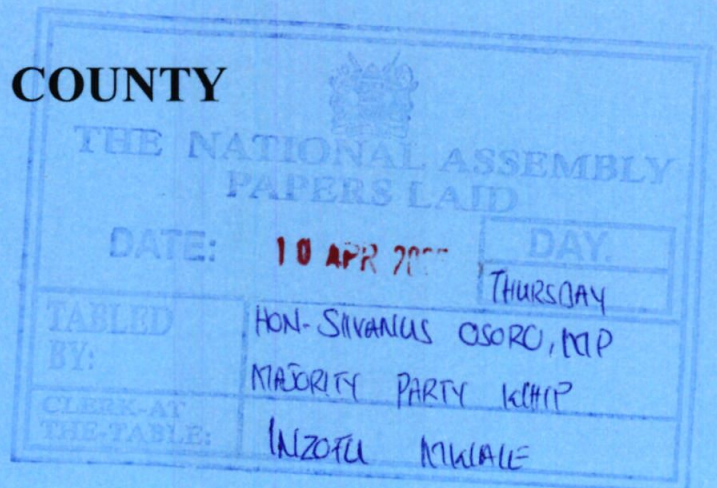 COUNTY
THE NATIONAL ASSEMBLY
PAPERS LAID
DATE: 10 APR DAY.
THURSDAY
TABLED BY: HON. SILVANUS OSORO, MP
MAJORITY PARTY WHIP
CLERK-AT THE-TABLE: INZOFU MWALE